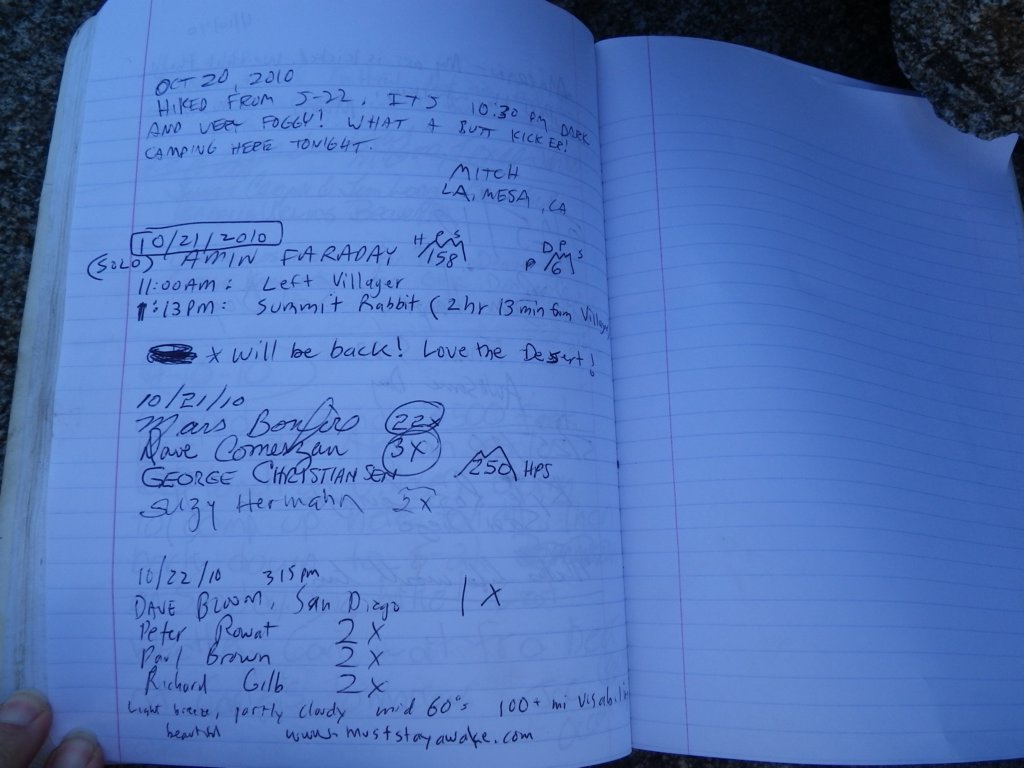 OCT 20, 2010
HIKED FROM S-22. ITS 10:30 PM DARK
AND VERY FOGGY! WHAT A BUTT KICKER!
CAMPING HERE TONIGHT.
MITCH
LA, MESA, CA
10/21/2010
(SOLO) AMIN FARADAY HPS 158 DPS P 6
11:00AM: Left Villager
1:13PM: Summit Rabbit (2hr 13min from Villager
* will be back! Love the Desert!
10/21/10
Mars Bonfire 22x
Dave Comerzan 3X
GEORGE CHRISTIANSEN 250 HPS
Suzy Hermann 2x
10/22/10 315pm
DAVE BLOOM, San Diego 1X
Peter Rowat 2x
Paul Brown 2x
Richard Gilb 2x
Light breeze, partly cloudy mid 60°s 100+ mi visabili
beautiful www.muststayawake.com